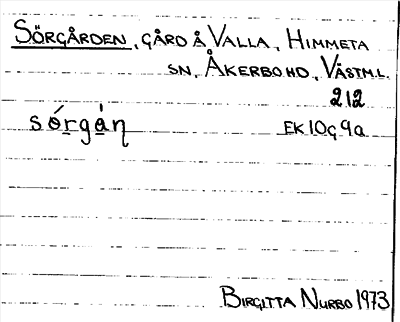 SÖRGÅRDEN, GÅRD Å VALLA, HIMMETA
SN, ÅKERBO HD, VÄSTML.
212
sórgàn̥ EK 10G9a
BIRGITTA NURBO 1973